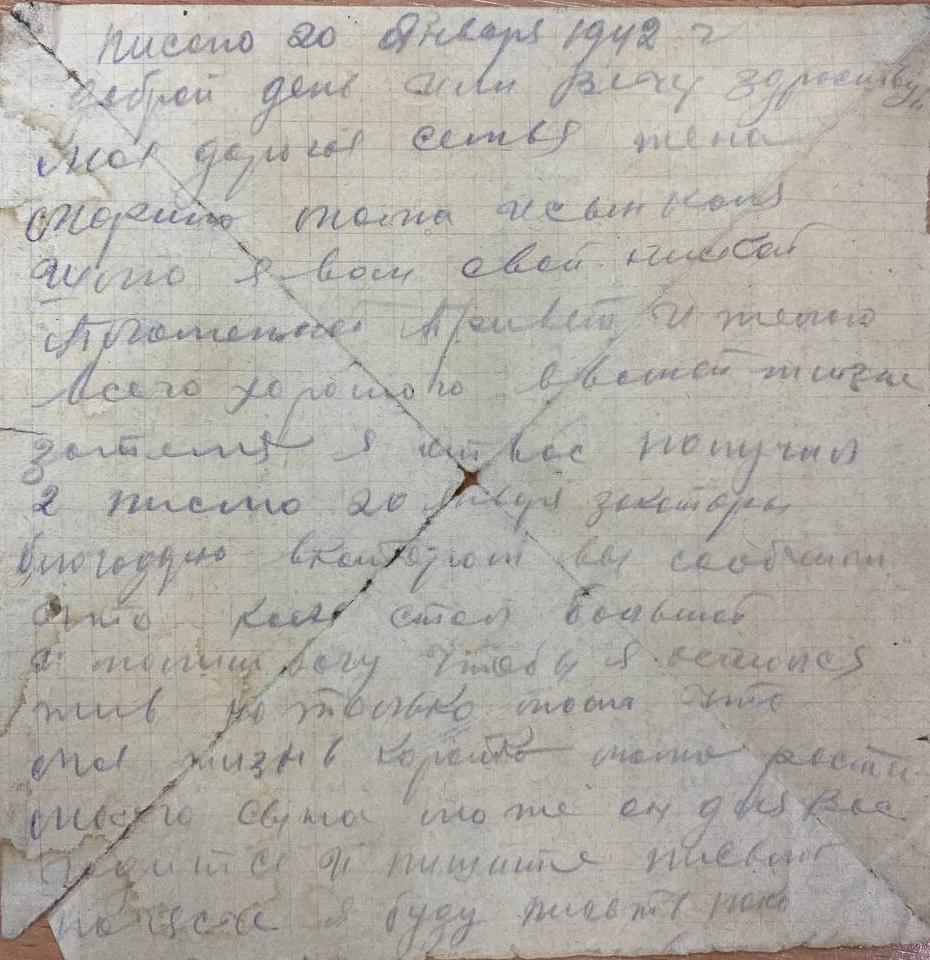 писано 20 Января 1942 г
добрый день или вечу здраствуй
моя дорогая семья жена
мама и сын коля
и я вам свой ниской
Пламенной Привет и желаю
всего хорошого в вашей жизне
затемя я от вас получил
2 писмо 20 января закоторы
благодарю вкотором вы сообчили
что коля стал большой
и молит богу чтобы я остался
жив но только мама что
моя жизнь коротка мама расти
моего сына може он для Вас
годится и пишите письмо
почясче я буду писать пока